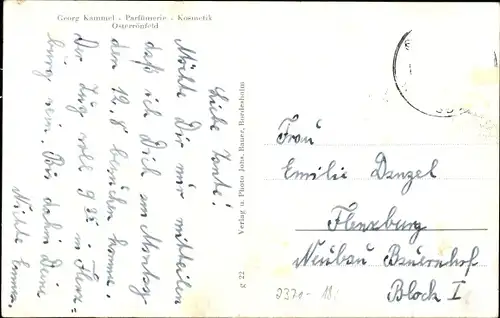 Georg Kummel - Parfümerie - Kosmetik
Osterrönfeld
Liebe Tante!
Möchte Dir nur mitteilen
daß ich Dich am Montag
den 12.8 besuchen komme.
Der Zug soll 9 in Flens=
burg sein. Bis dahin Deine
Nichte Emma.
Verlag u. Photo Johs. Bauer, Bordesholm
g 22
Frau
Emilie Danzel
Flensburg
Neubau Bauernhof
Block I
2370-18